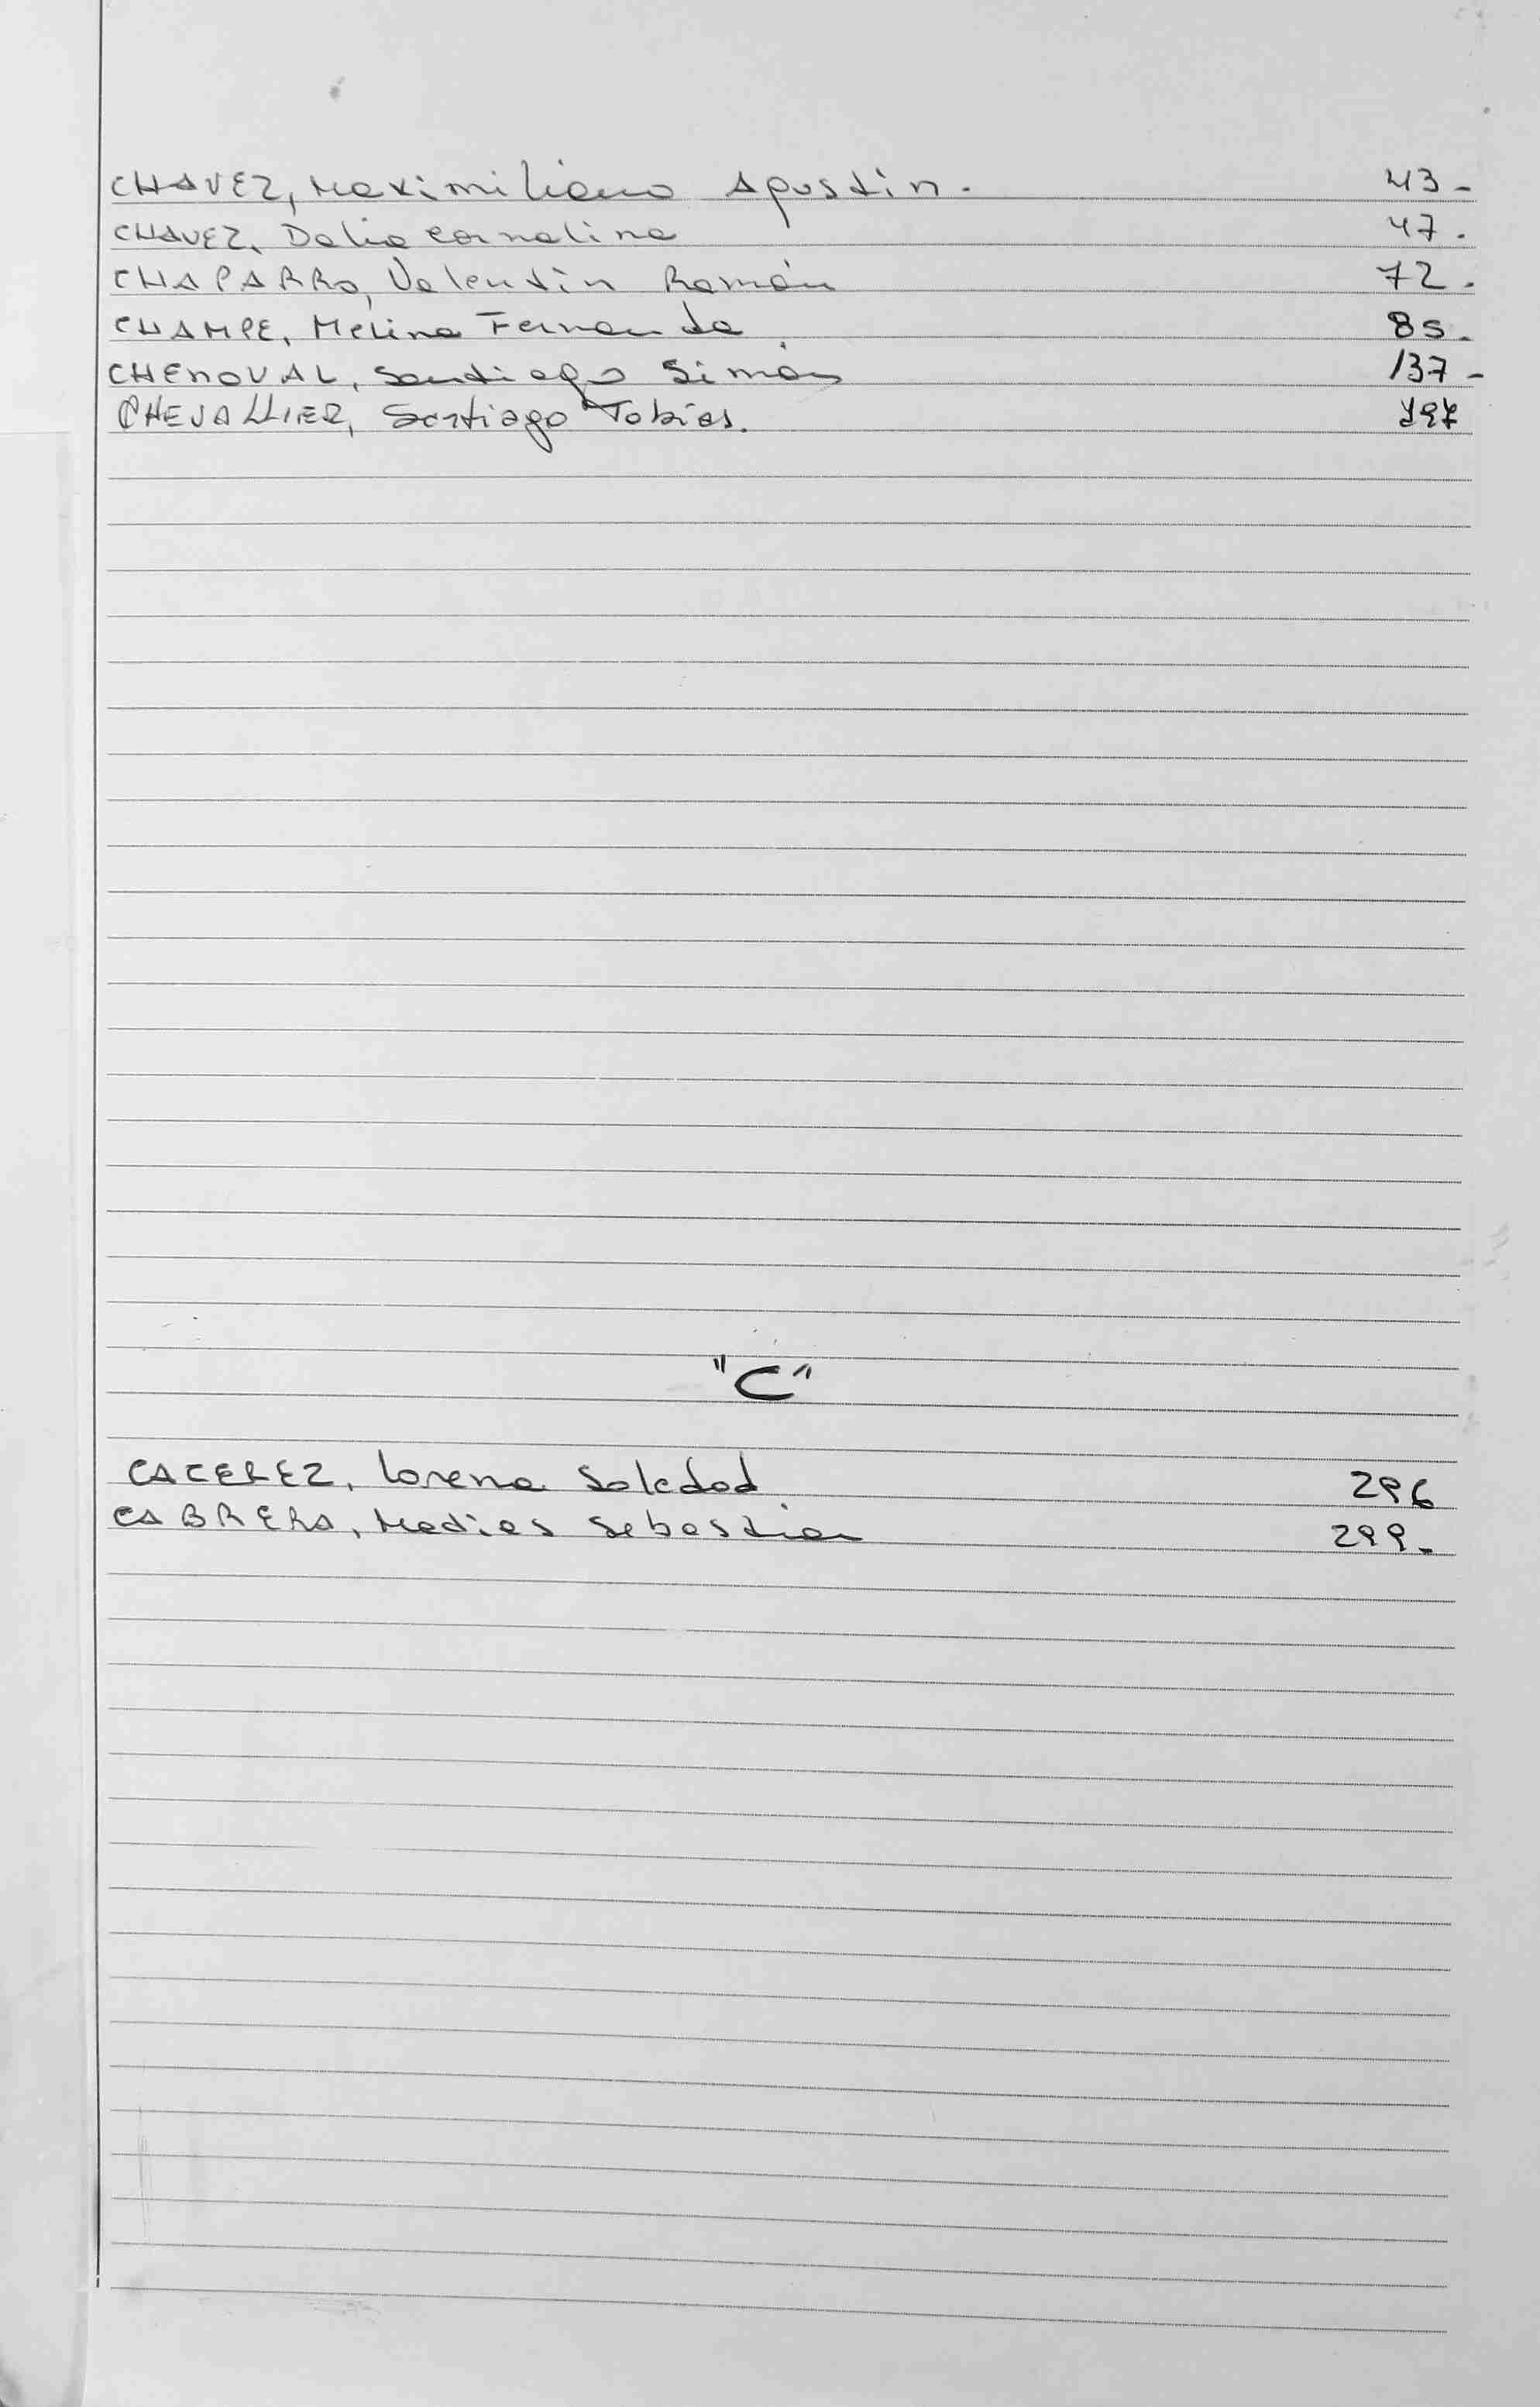 CHAVEZ, Maximiliano Agustin. 43-
CHAVEZ, Delia Cornelina 47.
CHAPARRO, Valentin Ramón 72.
CHAMPE, Melina Fernanda. 85.
CHENOVAL, Santiago Simón 137-
CHEVALLIER, Santiago Tobias. 197
"C"
CACEREZ, Lorena Soledad. 296
CABRERA, Matias Sebastian 299-